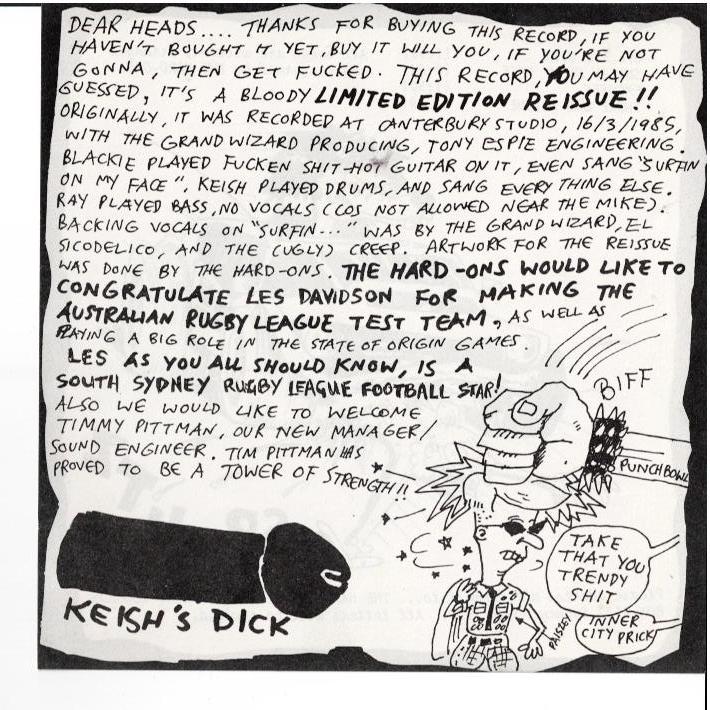 DEAR HEADS.... THANKS FOR BUYING THIS RECORD, IF YOU
HAVEN'T BOUGHT IT YET, BUY IT WILL YOU, IF YOU'RE NOT
GONNA, THEN GET FUCKED. THIS RECORD, YOU MAY HAVE
GUESSED, IT'S A BLOODY LIMITED EDITION REISSUE!!
ORIGINALLY, IT WAS RECORDED AT CANTERBURY STUDIO, 16/3/1985,
WITH THE GRAND WIZARD PRODUCING, TONY ESPIE ENGINEERING.
BLACKIE PLAYED FUCKEN SHIT-HOT GUITAR ON IT, EVEN SANG "SURFIN
ON MY FACE". KEISH PLAYED DRUMS, AND SANG EVERY THING ELSE.
RAY PLAYED BASS, NO VOCALS (COS NOT ALLOWED NEAR THE MIKE).
BACKING VOCALS ON "SURFIN..." WAS BY THE GRAND WIZARD, EL
SICODELICO, AND THE (UGLY) CREEP. ARTWORK FOR THE REISSUE
WAS DONE BY THE HARD-ONS. THE HARD-ONS WOULD LIKE TO
CONGRATULATE LES DAVIDSON FOR MAKING THE
AUSTRALIAN RUGBY LEAGUE TEST TEAM, AS WELL AS
PLAYING A BIG ROLE IN THE STATE OF ORIGIN GAMES.
LES AS YOU ALL SHOULD KNOW, IS A
SOUTH SYDNEY RUGBY LEAGUE FOOTBALL STAR!
ALSO WE WOULD LIKE TO WELCOME
TIMMY PITTMAN, OUR NEW MANAGER/
SOUND ENGINEER. TIM PITTMAN HAS
PROVED TO BE A TOWER OF STRENGTH!!
BIFF
PUNCHBOWL
TAKE
THAT YOU
TRENDY
SHIT
INNER
CITY PRICK
PAISLEY
KEISH'S DICK